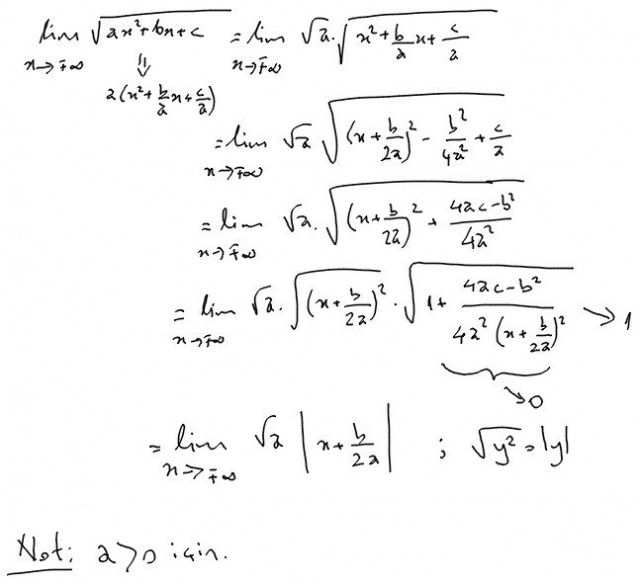 lim √(ax²+bx+c) = lim √a · √(x² + b/a x + c/a)
x→∓∞ x→∓∞
⇓
a(x² + b/a x + c/a)
= lim √a √((x + b/2a)² − b²/4a² + c/a)
x→∓∞
= lim √a · √((x + b/2a)² + (4ac−b²)/4a²)
x→∓∞
= lim √a · √((x + b/2a)²) · √(1 + (4ac−b²)/(4a²(x + b/2a)²)) → 1
x→∓∞
→0
= lim √a |x + b/2a| ; √y² = |y|
x→∓∞
Not: a>0 için.